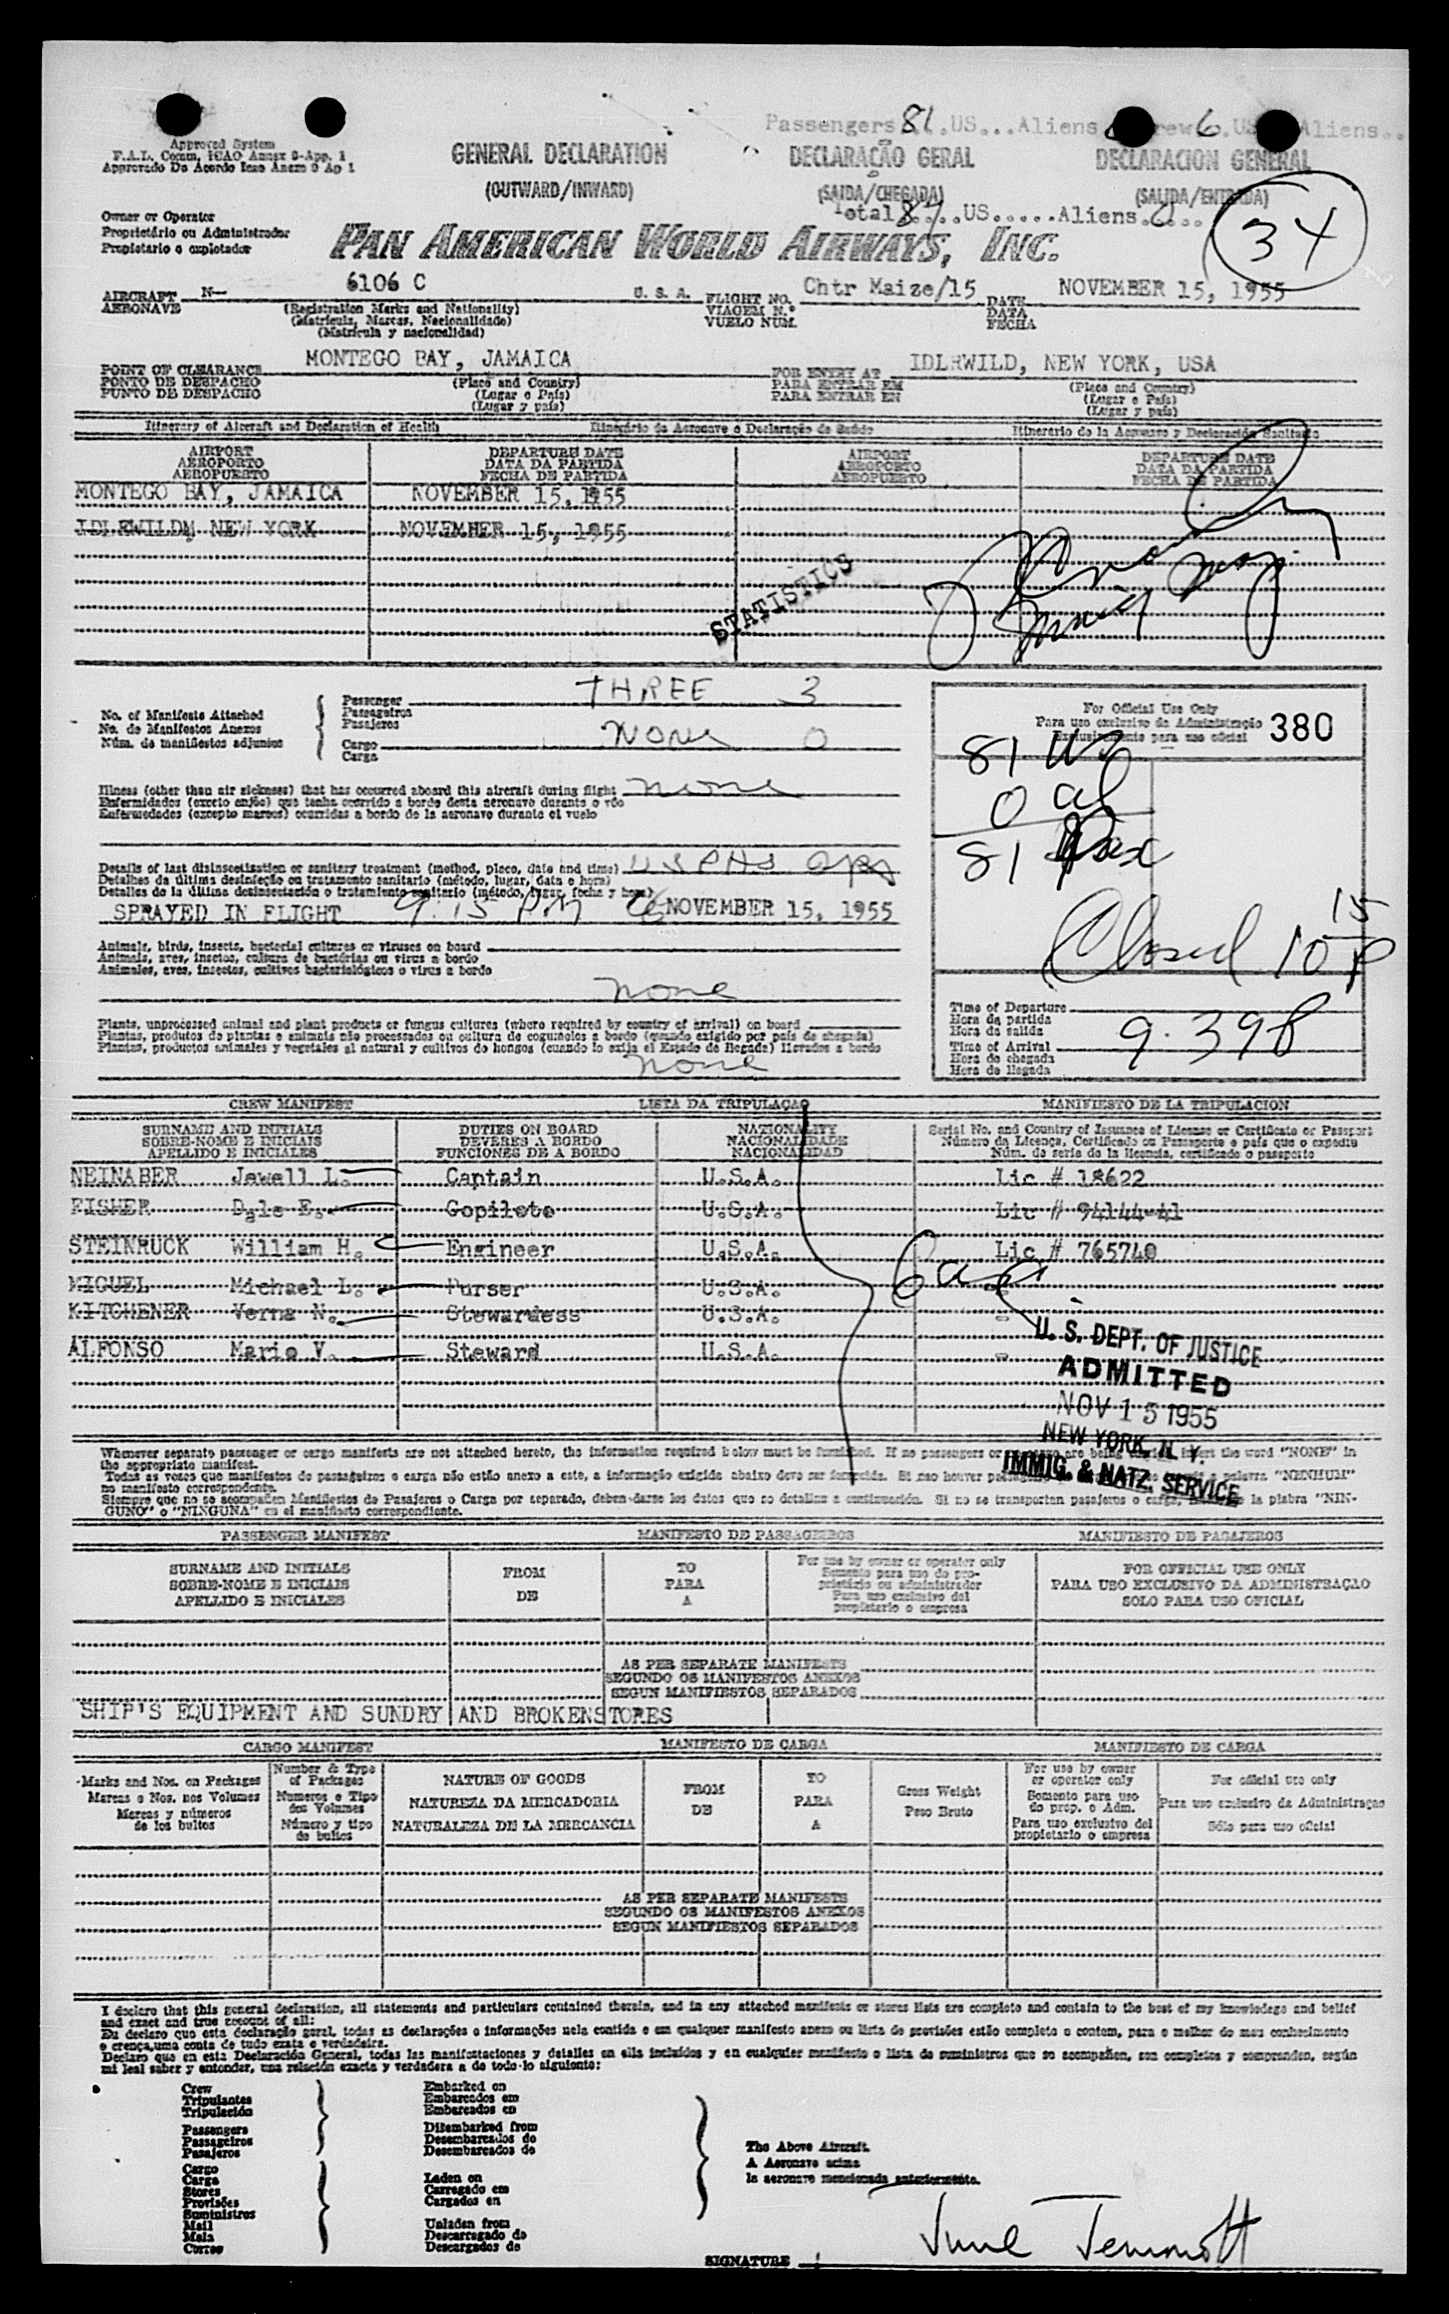 Passengers 81 .US...Aliens 6 .US Aliens..
Approved System
F.A.L. Comm. ICAO Annex 9-App. 1
Approvado De Acordo Icao Anexo 9 Ap 1
GENERAL DECLARATION DECLARAÇÃO GERAL DECLARACION GENERAL
(OUTWARD/INWARD) (SAIDA/CHEGADA) (SALIDA/ENTRADA)
Total 87 ..US.....Aliens. 0 ...
34
Owner or Operator
Proprietário ou Administrador
Propietario o explotador
PAN AMERICAN WORLD AIRWAYS, INC.
AIRCRAFT N— 6106 C U. S. A. FLIGHT NO. Chtr Maize/15 DATE NOVEMBER 15, 1955
AERONAVE (Registration Marks and Nationality) VIAGEM N.º DATA
(Matrícula, Marcas, Nacionalidade) VUELO NUM. FECHA
(Matrícula y nacionalidad)
POINT OF CLEARANCE MONTEGO BAY, JAMAICA FOR ENTRY AT IDLEWILD, NEW YORK, USA
PONTO DE DESPACHO (Place and Country) PARA ENTRAR EM (Place and Country)
PUNTO DE DESPACHO (Lugar e País) PARA ENTRAR EN (Lugar e País)
(Lugar y país) (Lugar y país)
Itinerary of Aircraft and Declaration of Health Itinerário da Aeronave e Declaração de Saúde Itinerario de la Aeronave y Declaración Sanitaria
AIRPORT DEPARTURE DATE AIRPORT DEPARTURE DATE
AEROPORTO DATA DA PARTIDA AEROPORTO DATA DA PARTIDA
AEROPUERTO FECHA DE PARTIDA AEROPUERTO FECHA DE PARTIDA
MONTEGO BAY, JAMAICA NOVEMBER 15, 1955
IDLEWILDM NEW YORK NOVEMHER 15, 1955
STATISTICS
No. of Manifests Attached
No. de Manifestos Anexos
Núm. de manifiestos adjuntos
Passenger THREE 3
Passageiros
Pasajeros
Cargo NONE 0
Carga
For Official Use Only
Para uso exclusivo da Administração
Exclusivamente para uso oficial
380
81 US
0 al
81 Pax
Closed 10 15 P
Illness (other than air sickness) that has occurred aboard this aircraft during flight none
Enfermidades (exceto enjôo) que tenha ocorrido a bordo desta aeronave durante o vôo
Enfermedades (excepto mareos) ocurridas a bordo de la aeronave durante el vuelo
Details of last disinsectization or sanitary treatment (method, place, date and time) USPHS
Detalhes da última desinfeção ou tratamento sanitario (método, lugar, data e hora)
Detalles de la última desinsectación o tratamiento sanitario (método, lugar, fecha y hora)
SPRAYED IN FLIGHT 9:15 PM NOVEMBER 15, 1955
Animals, birds, insects, bacterial cultures or viruses on board
Animais, aves, insetos, cultura de bactérias ou virus a bordo
Animales, aves, insectos, cultivos bacteriológicos o virus a bordo
none
Plants, unprocessed animal and plant products or fungus cultures (where required by country of arrival) on board
Plantas, produtos de plantas e animais não processados ou cultura de cogumelos a bordo (quando exigido por país de chegada)
Plantas, productos animales y vegetales al natural y cultivos de hongos (cuando lo exija el Estado de llegada) llevados a bordo
none
Time of Departure
Hora da partida
Hora de salida
Time of Arrival 9.39P
Hora de chegada
Hora de llegada
CREW MANIFEST LISTA DA TRIPULAÇÃO MANIFIESTO DE LA TRIPULACION
SURNAME AND INITIALS DUTIES ON BOARD NATIONALITY Serial No. and Country of Issuance of License or Certificate or Passport
SOBRE-NOME E INICIAIS DEVERES A BORDO NACIONALIDADE Número da Licença, Certificado ou Passaporte e país que o expediu
APELLIDO E INICIALES FUNCIONES DE A BORDO NACIONALIDAD Núm. de serie de la licencia, certificado o pasaporte
NEINABER Jewell L. Captain U.S.A. Lic # 18622
FISHER Dale E. Copilote U.S.A. Lic # 94144-41
STEINRUCK William H. Engineer U.S.A. Lic # 765740
MIGUEL Michael L. Purser U.S.A. -
KITCHENER Verna N. Stewardess U.S.A. -
ALFONSO Mario V. Steward U.S.A. -
U. S. DEPT. OF JUSTICE
ADMITTED
NOV 15 1955
NEW YORK, N. Y.
IMMIG. & NATZ. SERVICE
Whenever separate passenger or cargo manifests are not attached hereto, the information required below must be furnished. If no passengers or cargo are being carried, insert the word "NONE" in
the appropriate manifest.
Todas as vezes que manifestos de passageiros e carga não estão anexo a este, a informação exigida abaixo deve ser fornecida. Si nao houver a palavra "NENHUM"
no manifesto correspondente.
Siempre que no se acompañen Manifiestos de Pasajeros o Carga por separado, deben darse los datos que se detallan a continuación. Si no se transportan pasajeros o carga, la plabra "NIN-
GUNO" o "NINGUNA" en el manifiesto correspondiente.
PASSENGER MANIFEST MANIFESTO DE PASSAGEIROS MANIFIESTO DE PASAJEROS
SURNAME AND INITIALS FROM TO For use by owner or operator only FOR OFFICIAL USE ONLY
SOBRE-NOME E INICIAIS DE PARA Somente para uso do pro- PARA USO EXCLUSIVO DA ADMINISTRAÇÃO
APELLIDO E INICIALES A prietário ou administrador SOLO PARA USO OFICIAL
Para uso exclusivo del
propietario o empresa
AS PER SEPARATE MANIFESTS
SEGUNDO OS MANIFESTOS ANEXOS
SEGUN MANIFIESTOS SEPARADOS
SHIP'S EQUIPMENT AND SUNDRY AND BROKENSTORES
CARGO MANIFEST MANIFESTO DE CARGA MANIFIESTO DE CARGA
Marks and Nos. on Packages Number & Type of Packages NATURE OF GOODS FROM TO Gross Weight For use by owner or operator only For official use only
Marcas e Nos. nos Volumes Numeros e Tipo dos Volumes NATUREZA DA MERCADORIA DE PARA Peso Bruto Somente para uso do prop. o Adm. Para uso exclusivo da Administraçao
Marcas y números de los bultos Número y tipo de bultos NATURALEZA DE LA MERCANCÍA A Para uso exclusivo del propietario o empresa Sólo para uso oficial
AS PER SEPARATE MANIFESTS
SEGUNDO OS MANIFESTOS ANEXOS
SEGUN MANIFIESTOS SEPARADOS
I declare that this general declaration, all statements and particulars contained therein, and in any attached manifests or stores lists are complete and contain to the best of my knowledege and belief
and exact and true account of all:
Eu declaro que esta declaração geral, todas as declarações e informações nela contida e em qualquer manifesto anexo ou lista de provisões estão completo e contem, para o melhor do meu conhecimento
e crença,uma conta de tudo exata e verdadeira.
Declaro que en esta Declaración General, todas las manifestaciones y detalles en ella incluídos y en cualquier manifiesto o lista de suministros que se acompañen, son completos y comprenden, según
mi leal saber y entender, una relación exacta y verdadera a de todo lo siguiente:
Crew Embarked on
Tripulantes Embarcados em
Tripulación Embarcados en
Passengers Disembarked from
Passageiros Desembarcados do
Pasajeros Desembarcados de
The Above Aircraft.
A Aeronave acima
la aeronave mencionada anteriormente.
Cargo
Carga Laden on
Stores Carregado em
Provisões Cargados en
Suministros
Mail Unladen from
Mala Descarregado do
Correo Descargados de
SIGNATURE June Jemmott